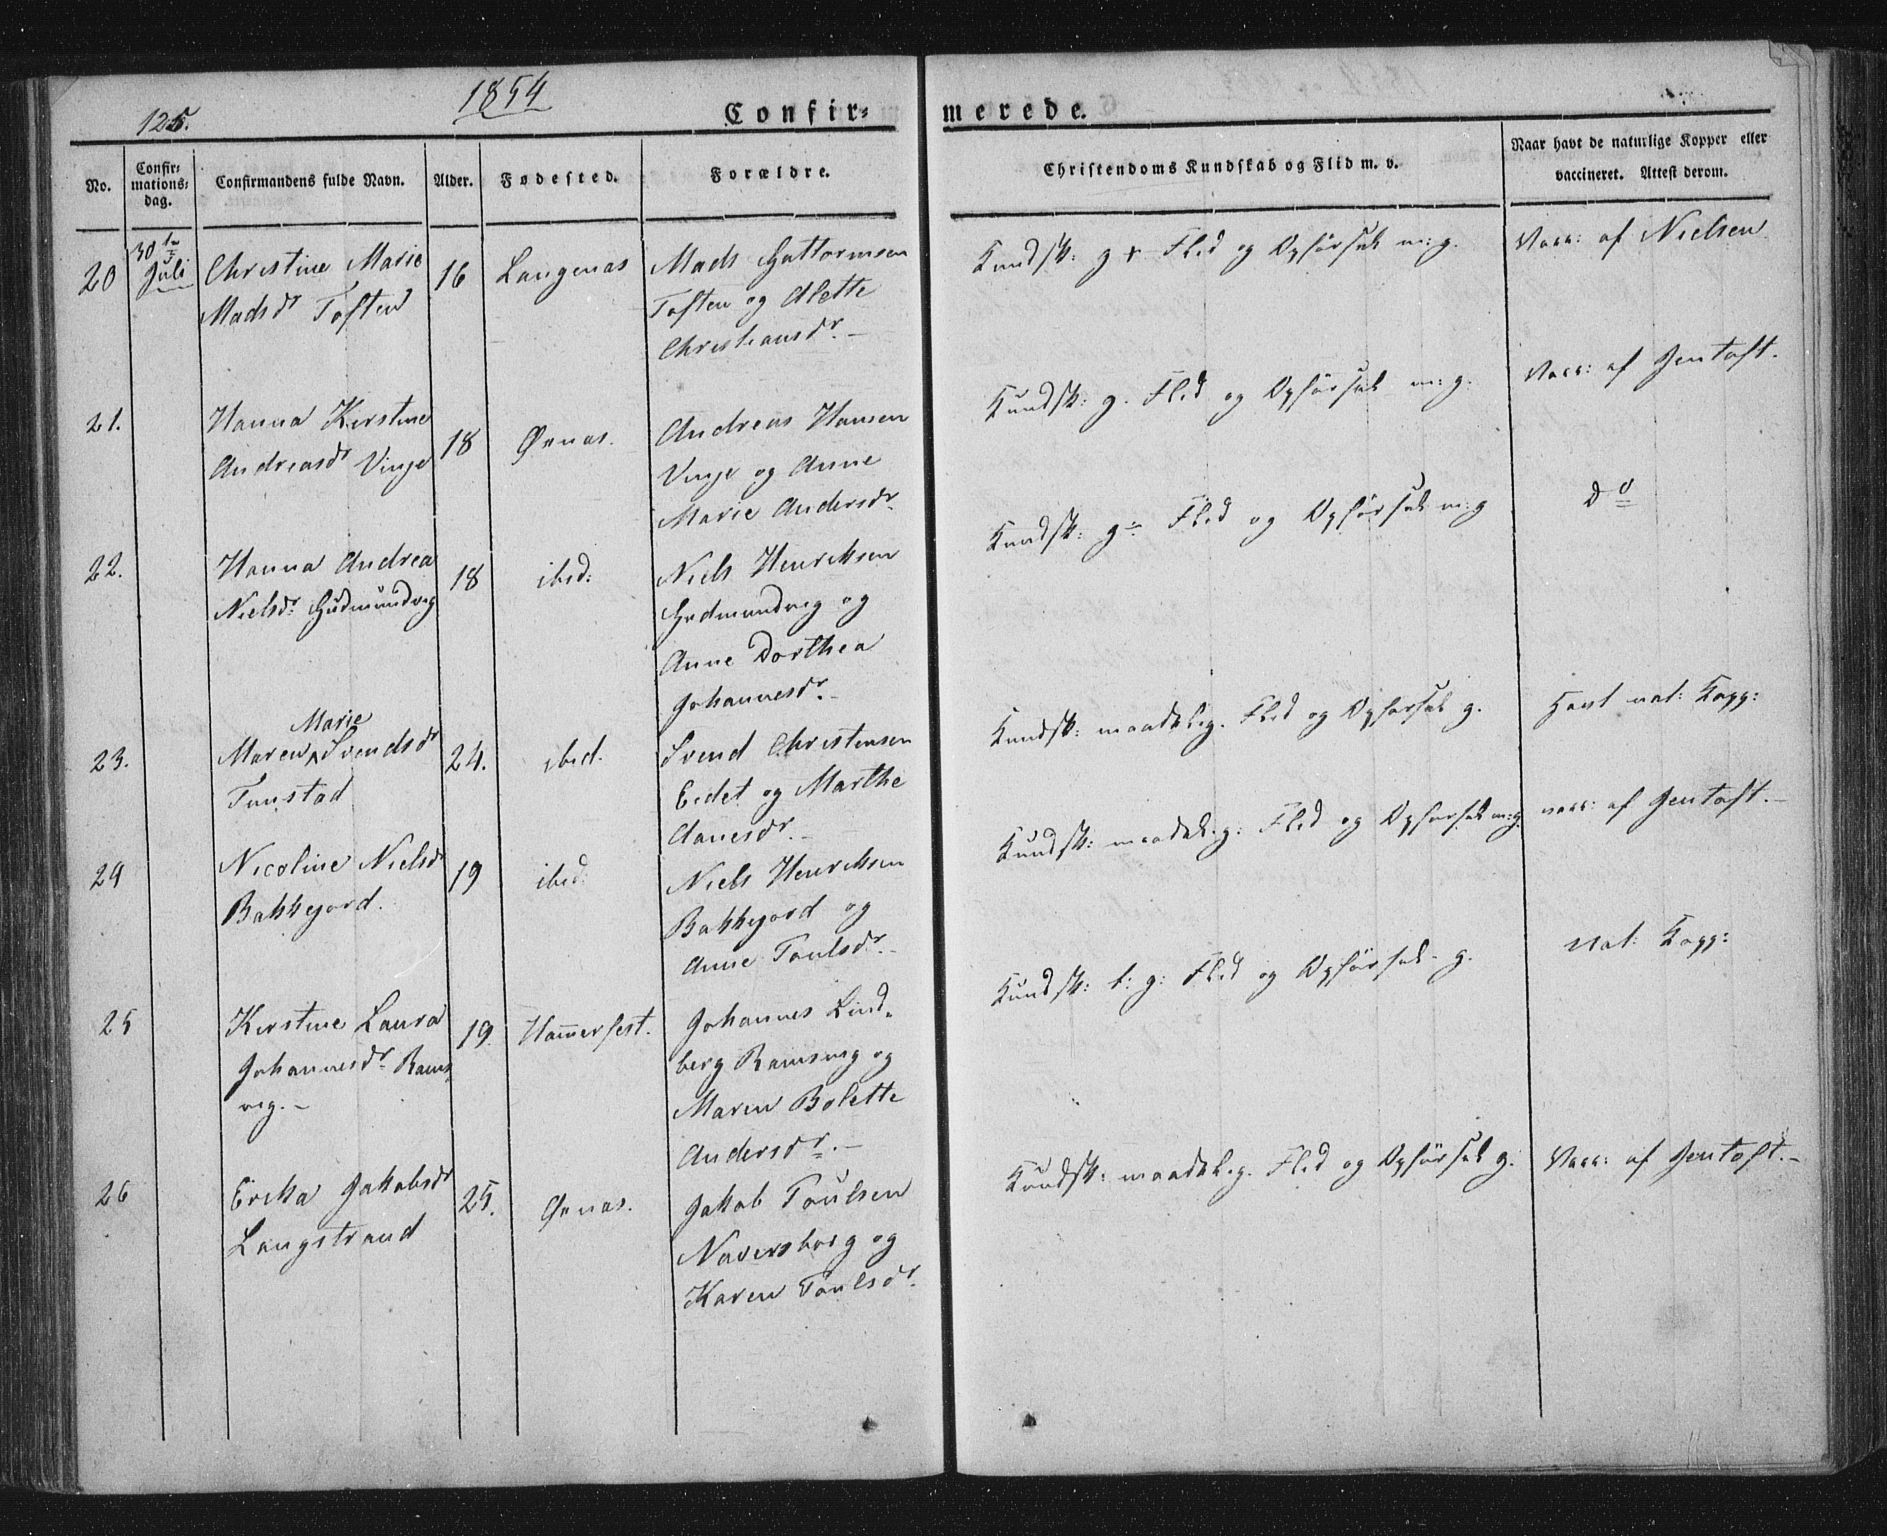 125.
1854
Confirmerede.
No.
Confirmationsdag.
Confirmandens fulde Navn.
Alder.
Fødested.
Forældre.
Christendoms Kundskab og Flid m. v.
Naar havt de naturlige Kopper eller
vaccineret. Attest derom.
20
30
Juli
Christine Marie
Madsdr Toften
16
Langenæs
Mads Guttormsen
Toften og Alette
Christiansdr. –
Kundsk: g + Flid og Opførsel m: g.
Vacc: af Nielsen
21.
Hanna Kirstine
Andreasdr Vinje
18
Øxnæs.
Andreas Hansen
Vinje og Anne
Marie Andersdr.
Kundsk: g. Flid og Opførsel m: g.
Vacc: af Jentoft.
22.
Hanna Andrea
Nielsdr: Gudmundvig
18
ibid:
Niels Henriksen
Gudmundvig og
Anne Dorthea
Johannesdr. –
Kundsk: g÷ Flid og Opførsel m: g
Do
23.
Marie
Maren Svendsdr
Tunstad
24.
ibid.
Svend Christensen
Eidet og Marthe
Aanesdr. –
Kundsk: maadelig. Flid og Opførsel g.
Havt nat: Kopp:
24
Nicoline Nielsdr
Bakkejord.
19
ibid:
Niels Henriksen
Bakkejord og
Anne Poulsdr. –
Kundsk: maadel. g: Flid og Opførsel m: g.
vacc: af Jentoft. –
25
Kirstine Laura
Johannesdr Ramsvig. –
19.
Ham̅erfest.
Johannes Lindberg Ramsvig og
Maren Bolette
Andersdr. –
Kundsk: t: g: Flid og Opførsel g.
Nat: Kopp:
26
Erika Jakobsdr
Langstrand
25.
Øxnæs.
Jakob Poulsen
Naversborg og
Karen Poulsdr.
Kundsk: maadelig. Flid og Opførsel g.
Vacc: af Jentoft. –